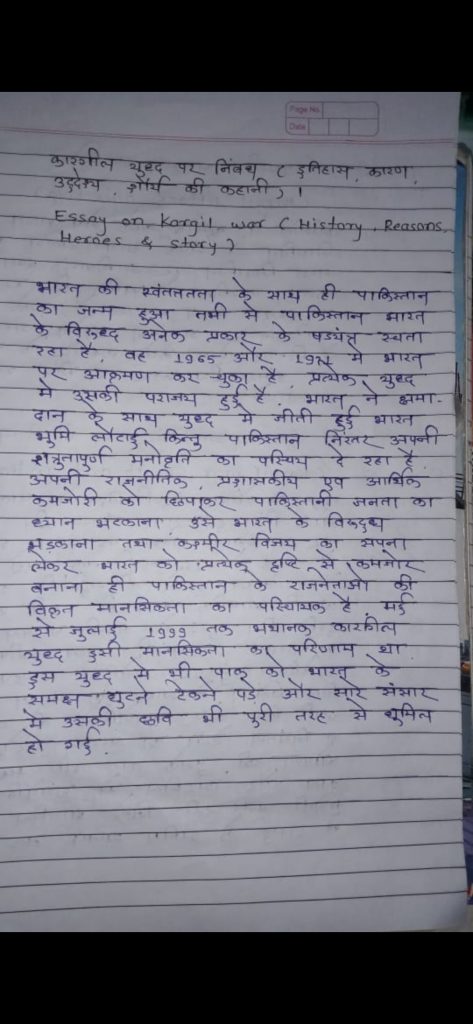 Page No.
Date
कारगील युध्द पर निबंध ( इतिहास, कारण,
उद्देश्य, शौर्य की कहानी) ।
Essay on Kargil war ( History, Reasons,
Heroes & story )
भारत की स्वंतततता के साथ ही पाकिस्तान
का जन्म हुआ तभी से पाकिस्तान भारत
के विरुध्द अनेक प्रकार के षडयंत्र रचता
रहा है. वह 1965 और 1971 मे भारत
पर आक्रमण कर चुका है. प्रत्येक युध्द
मे उसकी पराजय हुई है. भारत ने क्षमा-
दान के साथ युध्द मे जीती हुई भारत
भुमि लौटाई किन्तु पाकिस्तान निरंतर अपनी
शत्रुतापुर्ण मनोवृति का परिचय दे रहा है.
अपनी राजनीतिक, प्रशासकीय एव आर्थिक
कमजोरी को छिपाकर पाकिस्तानी जनता का
ध्यान भटकाना उसे भारत के विरूदध
भड़काना तथा कश्मीर विजय का सपना
लेकर भारत को प्रत्येक दृष्टि से कमजोर
बनाना ही पाकिस्तान के राजनेताओ की
विकृत मानसिकता का परिचायक है. मई
से जुलाई 1999 तक भयानक कारगील
युध्द इसी मानसिकता का परिणाम था
इस युध्द मे भी पाक को भारत के
समक्ष घुटने टेकने पडे और सारे संसार
मे उसकी छवि भी पुरी तरह से धुमिल
हो गई.